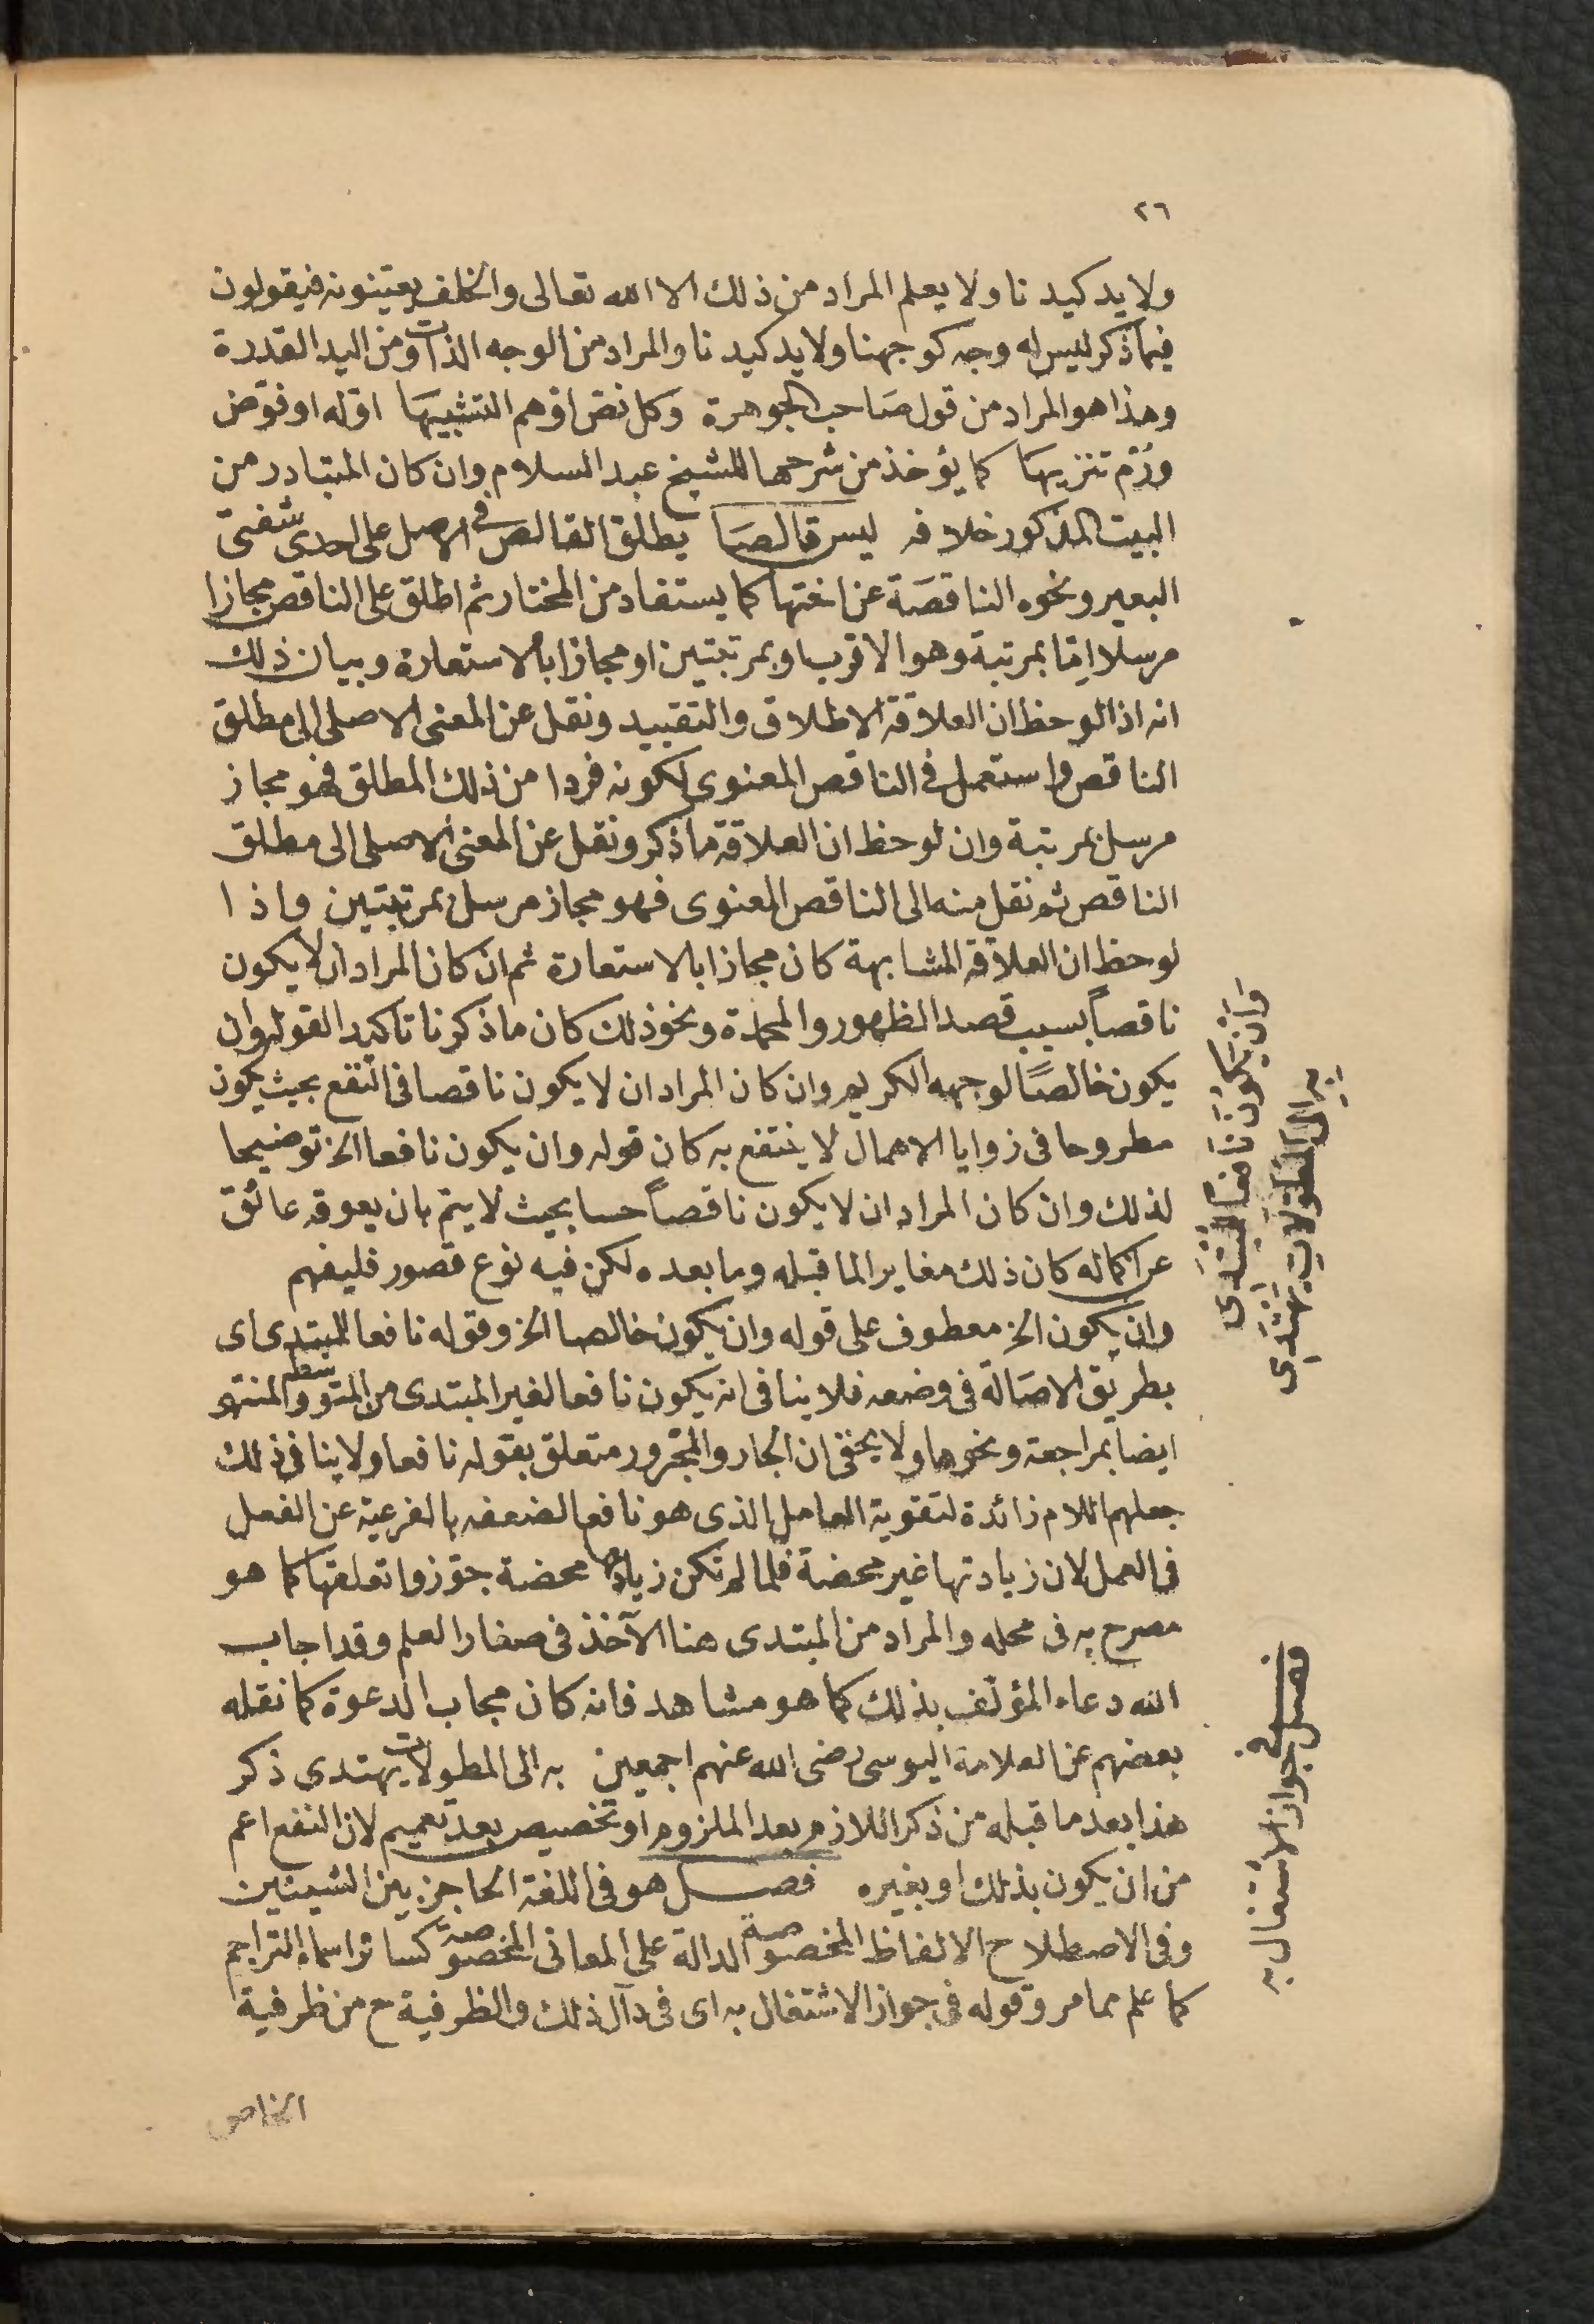 ٢٦
ولا يد كيدنا ولا يعلم المراد من ذلك الا الله تعالى والخلف يعينونه فيقولون
فيما ذكر ليس له وجه كوجهنا ولا يد كيدنا والمراد من الوجه الذات ومن اليد القدرة
وهذا هو المراد من قول صاحب الجوهرة وكل نص اوهم التشبيها اوله او فوض
ورم تنزيها كما يؤخذ من شرحها للشيخ عبد السلام وان كان المتبادر من
البيت المذكور خلافه ليس قالصا يطلق القالص فى الاصل على احدى شفتى
البعير ونحوه الناقصة عن اختها كما يستفاد من المختار ثم اطلق على الناقص مجازا
مرسلا اما بمرتبة وهو الاقرب او بمرتبتين او مجازا بالاستعارة وبيان ذلك
انه اذا لوحظ ان العلاقة الاطلاق والتقييد ونقل عن المعنى الاصلى الى مطلق
الناقص واستعمل فى الناقص المعنوى لكونه فردا من ذلك المطلق فهو مجاز
مرسل بمرتبة وان لوحظ ان العلاقة ما ذكر ونقل عن المعنى الاصلى الى مطلق
الناقص ثم نقل منه الى الناقص المعنوى فهو مجاز مرسل بمرتبتين واذا
لوحظ ان العلاقة المشابهة كان مجازا بالاستعارة ثم ان كان المراد ان لا يكون
ناقصاً بسبب قصد الظهور والمحمدة ونحو ذلك كان ما ذكرنا تاكيدا لقوله وان
يكون خالصًا لوجهه الكريم وان كان المراد ان لا يكون ناقصا فى النفع بحيث يكون
مطروحا فى زوايا الاهمال لا ينتفع به كان قوله وان يكون نافعا الخ توضيحا
لذلك وان كان المراد ان لا يكون ناقصاً حسا بحيث لا يتم بان يعوقه عائق
عن اكماله كان ذلك مغايرا لما قبله وما بعده لكن فيه نوع قصور فليفهم
وان يكون الخ معطوف على قوله وان يكون خالصا الخ وقوله نافعا للمبتدى اى
بطريق الاصالة فى وضعه فلا ينافى انه يكون نافعا لغير المبتدى من المتوسط والمنتهى
ايضا بمراجعة ونحوها ولا يخفى ان الجار والمجرور متعلق بقوله نافعا ولا ينافى ذلك
جعلهم اللام زائدة لتقوية العامل الذى هو نافعا لضعفه بالفرعية عن الفعل
فى العمل لان زيادتها غير محضة فلما لم تكن زيادتها محضة جوزوا تعلقها كما هو
مصرح به فى محله والمراد من المبتدى هنا الآخذ فى صغار العلم وقد اجاب
الله دعاء المؤلف بذلك كما هو مشاهد فانه كان مجاب الدعوة كما نقله
بعضهم عن العلامة اليوسى رضى الله عنهم اجمعين به الى المطولات يهتدى ذكر
هذا بعد ما قبله من ذكر اللازم بعد الملزوم او تخصيص بعد تعميم لان النفع اعم
من ان يكون بذلك او بغيره فصل هو فى اللغة الحاجز بين الشيئين
وفى الاصطلاح الالفاظ المخصوصة الدالة على المعانى المخصوصة كسائر اسماء التراجم
كما علم مما مر وقوله فى جواز الاشتغال به اى فى دال ذلك والظرفية ح من ظرفية
الخاص
وَاَنْ يَكُونَ نَافِعًا لِلْمُبْتَدِى
بِهِ اِلَى الْمُطَوَّلَاتِ يَهْتَدِى
فصل فى جواز الاشتغال به